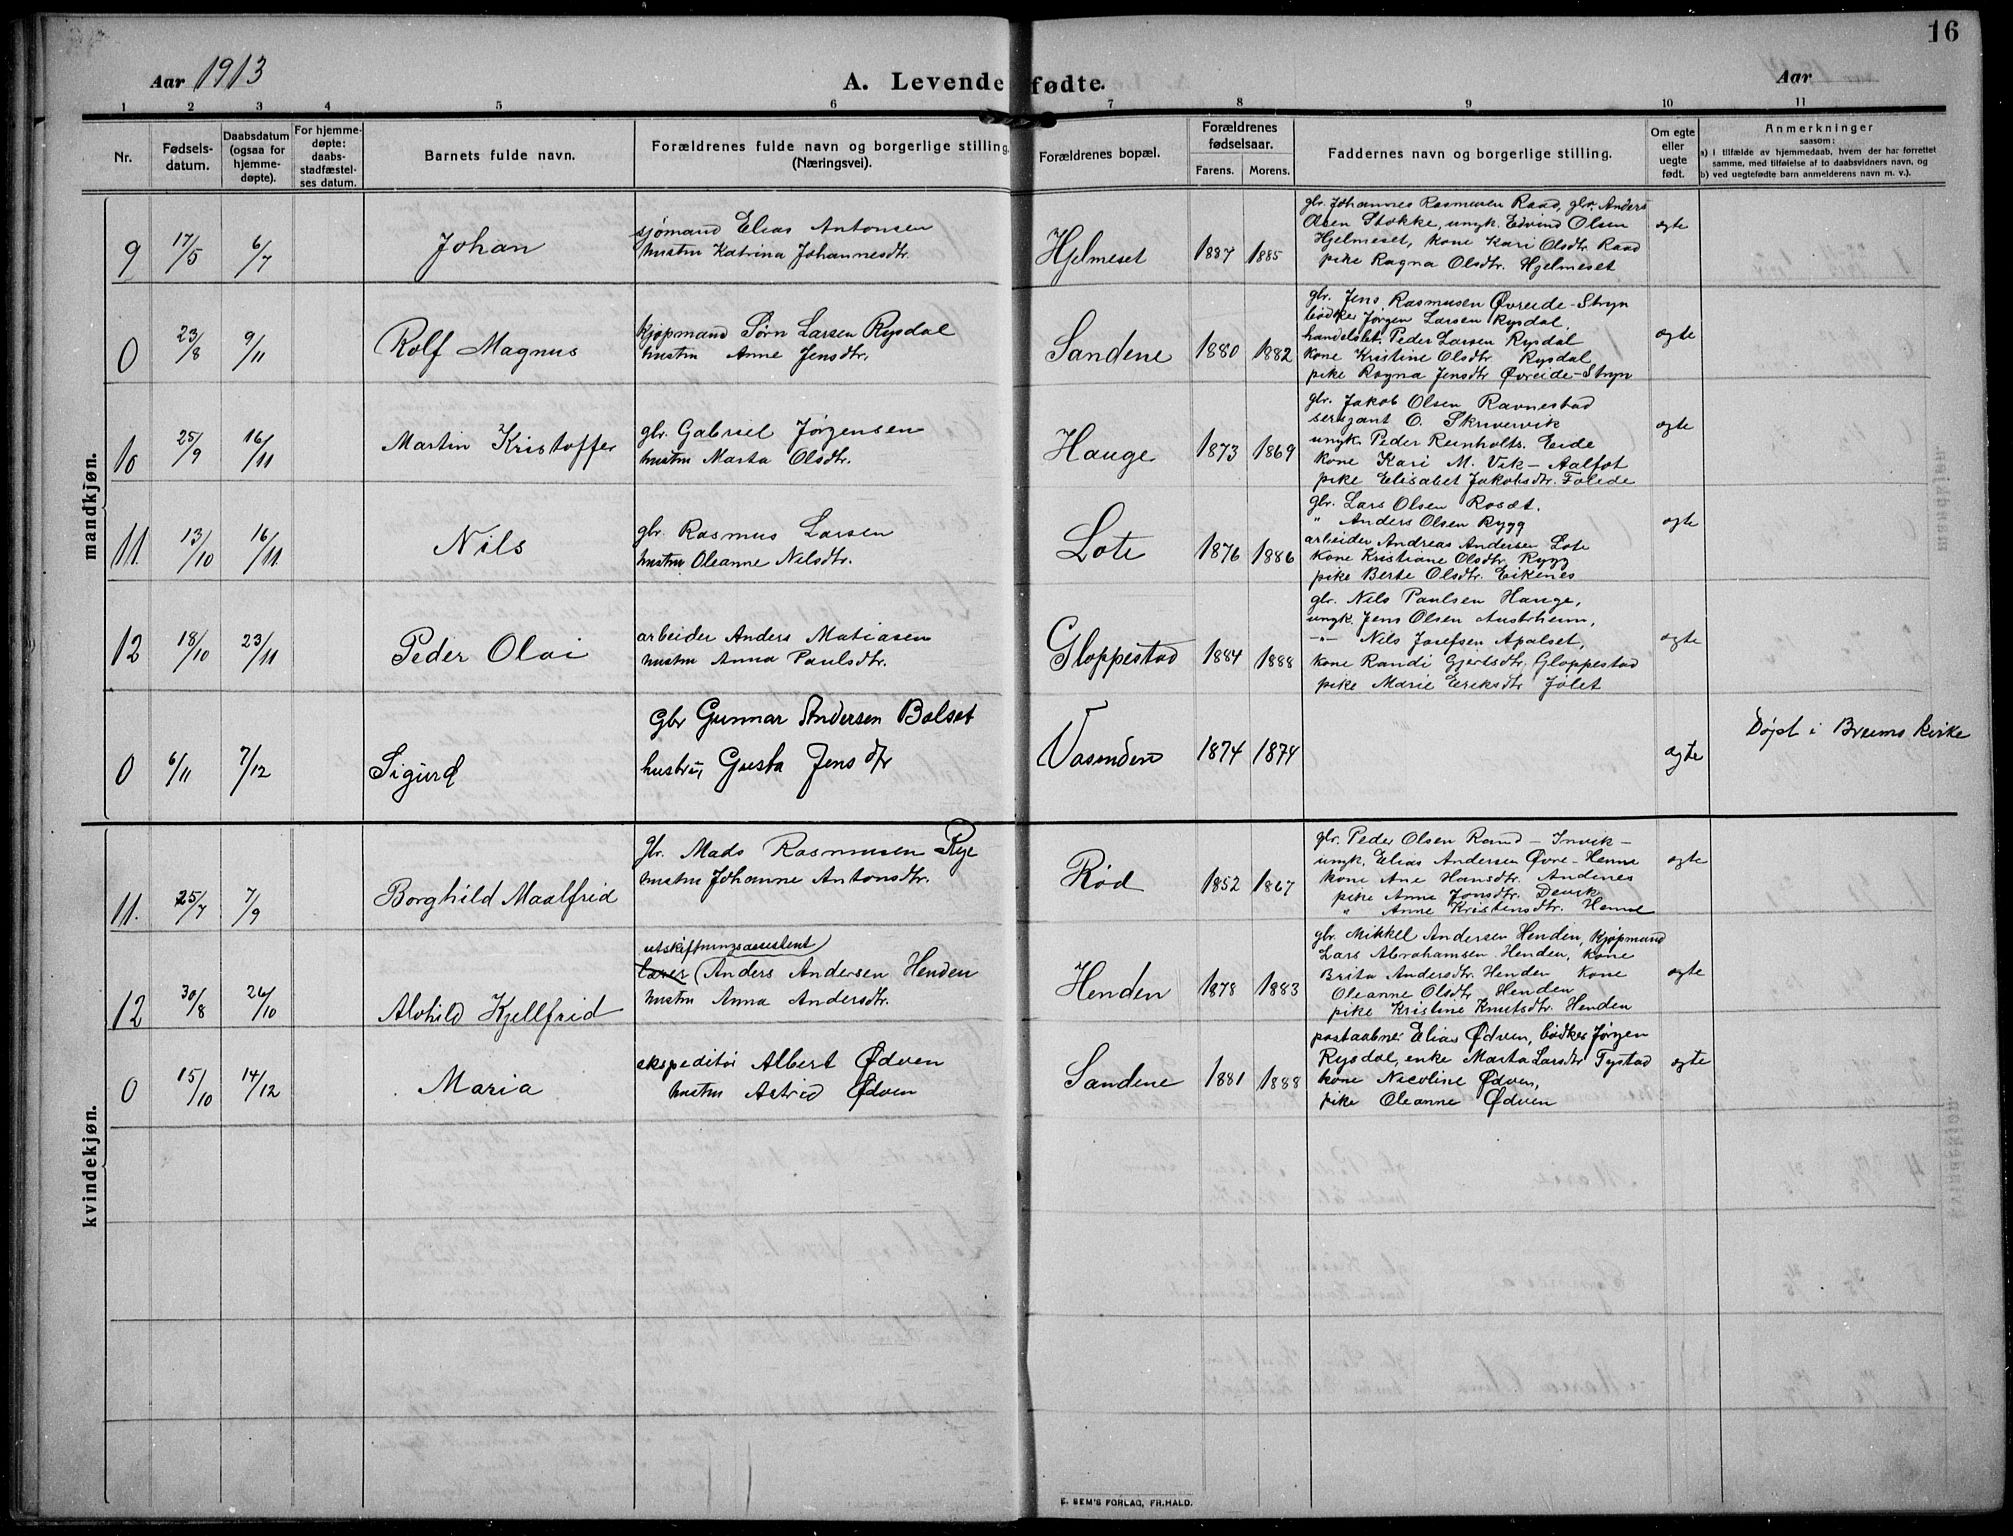 16
Aar 1913
A. Levendefødte.
Aar
1 2 3 4 5 6 7 8 9 10 11
Nr.
Fødsels-
datum.
Daabsdatum
(ogsaa for
hjemme-
døpte).
For hjemme-
døpte:
daabs-
stadfæstel-
ses datum.
Barnets fulde navn.
Forældrenes fulde navn og borgerlige stilling
(Næringsvei).
Forældrenes bopæl.
Forældrenes
fødselsaar.
Farens. Morens.
Faddernes navn og borgerlige stilling.
Om egte
eller
uegte
født.
Anmerkninger
saasom:
a) i tilfælde av hjemmedaab, hvem der har forrettet
samme, med tilføielse af to daabsvidners navn, og
b) ved uegtefødte barn anmelderens navn m. v.).
mandkjøn.
9 17/5 6/7 Johan
sjømand Elias Antonsen
hustru Katrina Johannesdtr.
Hjelmeset 1887 1885
gbr. Johannes Rasmusen Raad, gbr. Anders
Olsen Stokke, ungk. Edvind Olsen
Hjelmeset, kone Kari Olsdtr. Raad
pike Ragna Olsdtr. Hjelmeset
egte
0 23/8 9/11 Rolf Magnus
kjøpmand Sørn Larsen Rysdal
hustru Anne Jensdtr.
Sandene 1880 1882
gbr. Jens Rasmusen Øvreide-Stryn
bødker Jørgen Larsen Rysdal,
handelsbet. Peder Larsen Rysdal
kone Kristine Olsdtr Rysdal,
pike Ragna Jensdtr Øvreide-Stryn
egte
10 25/9 16/11 Martin Kristoffer
gbr. Gabriel Jørgensen
hustru Marta Olsdtr.
Hauge 1873 1869
gbr. Jakob Olsen Ravnestad
sersjant O. Skrivervik
ungk. Peder Reinholts. Eide
kone Kari M. Vik - Aalfot
pike Elisabet Jakobsdtr. Føleide
egte
11. 13/10 16/11. Nils
gbr. Rasmus Larsen
hustru Oleanne Nilsdtr.
Lote 1876 1886
gbr. Lars Olsen Rosæt.
" Anders Olsen Rygg
arbeider Andreas Andersen Lote
kone Kristiane Olsdtr. Rygg
pike Berte Olsdtr. Eikenes
egte
12 18/10 23/11 Peder Olai
arbeider Anders Matiasen
hustru Anna Paulsdtr.
Gloppestad 1884 1888
gbr. Nils Paulsen Hauge,
ungk. Jens Olsen Austrheim,
-"- Nils Josefsen Apalset,
kone Randi Gjertsdtr. Gloppestad
pike Marie Eriksdtr Jølet
egte
0 6/11 7/12 Sigurd
Gbr Gunnar Andersen Bolset
hustru Gusta Jens dtr
Vasenden 1874 1874
"
egte
Døpt i Breims kirke
kvindekjøn.
11. 25/7 7/9 Borghild Maalfrid
gbr. Mads Rasmusen Rye
hustru Johanne Antonsdtr.
Rød 1852 1867
gbr. Peder Olsen Rand - Invik -
ungk. Elias Andersen Øvre-Henne
kone Ane Hansdtr. Andenes
pike Anne Jonsdtr. Devik
" Anne Kristensdtr. Henne
egte
12 30/8 26/10 Alvhild Kjellfrid
utskiftningsassistent
lærer (Anders Andersen Henden
hustru Anna Andersdtr.
Henden 1878 1883
gbr. Mikkel Andersen Henden, Kjøpmand
Lars Abrahamsen Henden, kone
Brita Andersdtr. Henden kone
Oleanne Olsdtr Henden
pike Kristine Knutsdtr. Henden
egte
0 15/10 14/12 Maria
ekspeditør Albert Ødven
hustru Astrid Ødven
Sandene 1881 1888
postaabner Elias Ødven, bødker Jørgen
Rysdal, enke Marta Larsdtr Tystad
kone Nicoline Ødven,
pike Oleanne Ødven
egte
E. SEM'S FORLAG, FR.HALD.